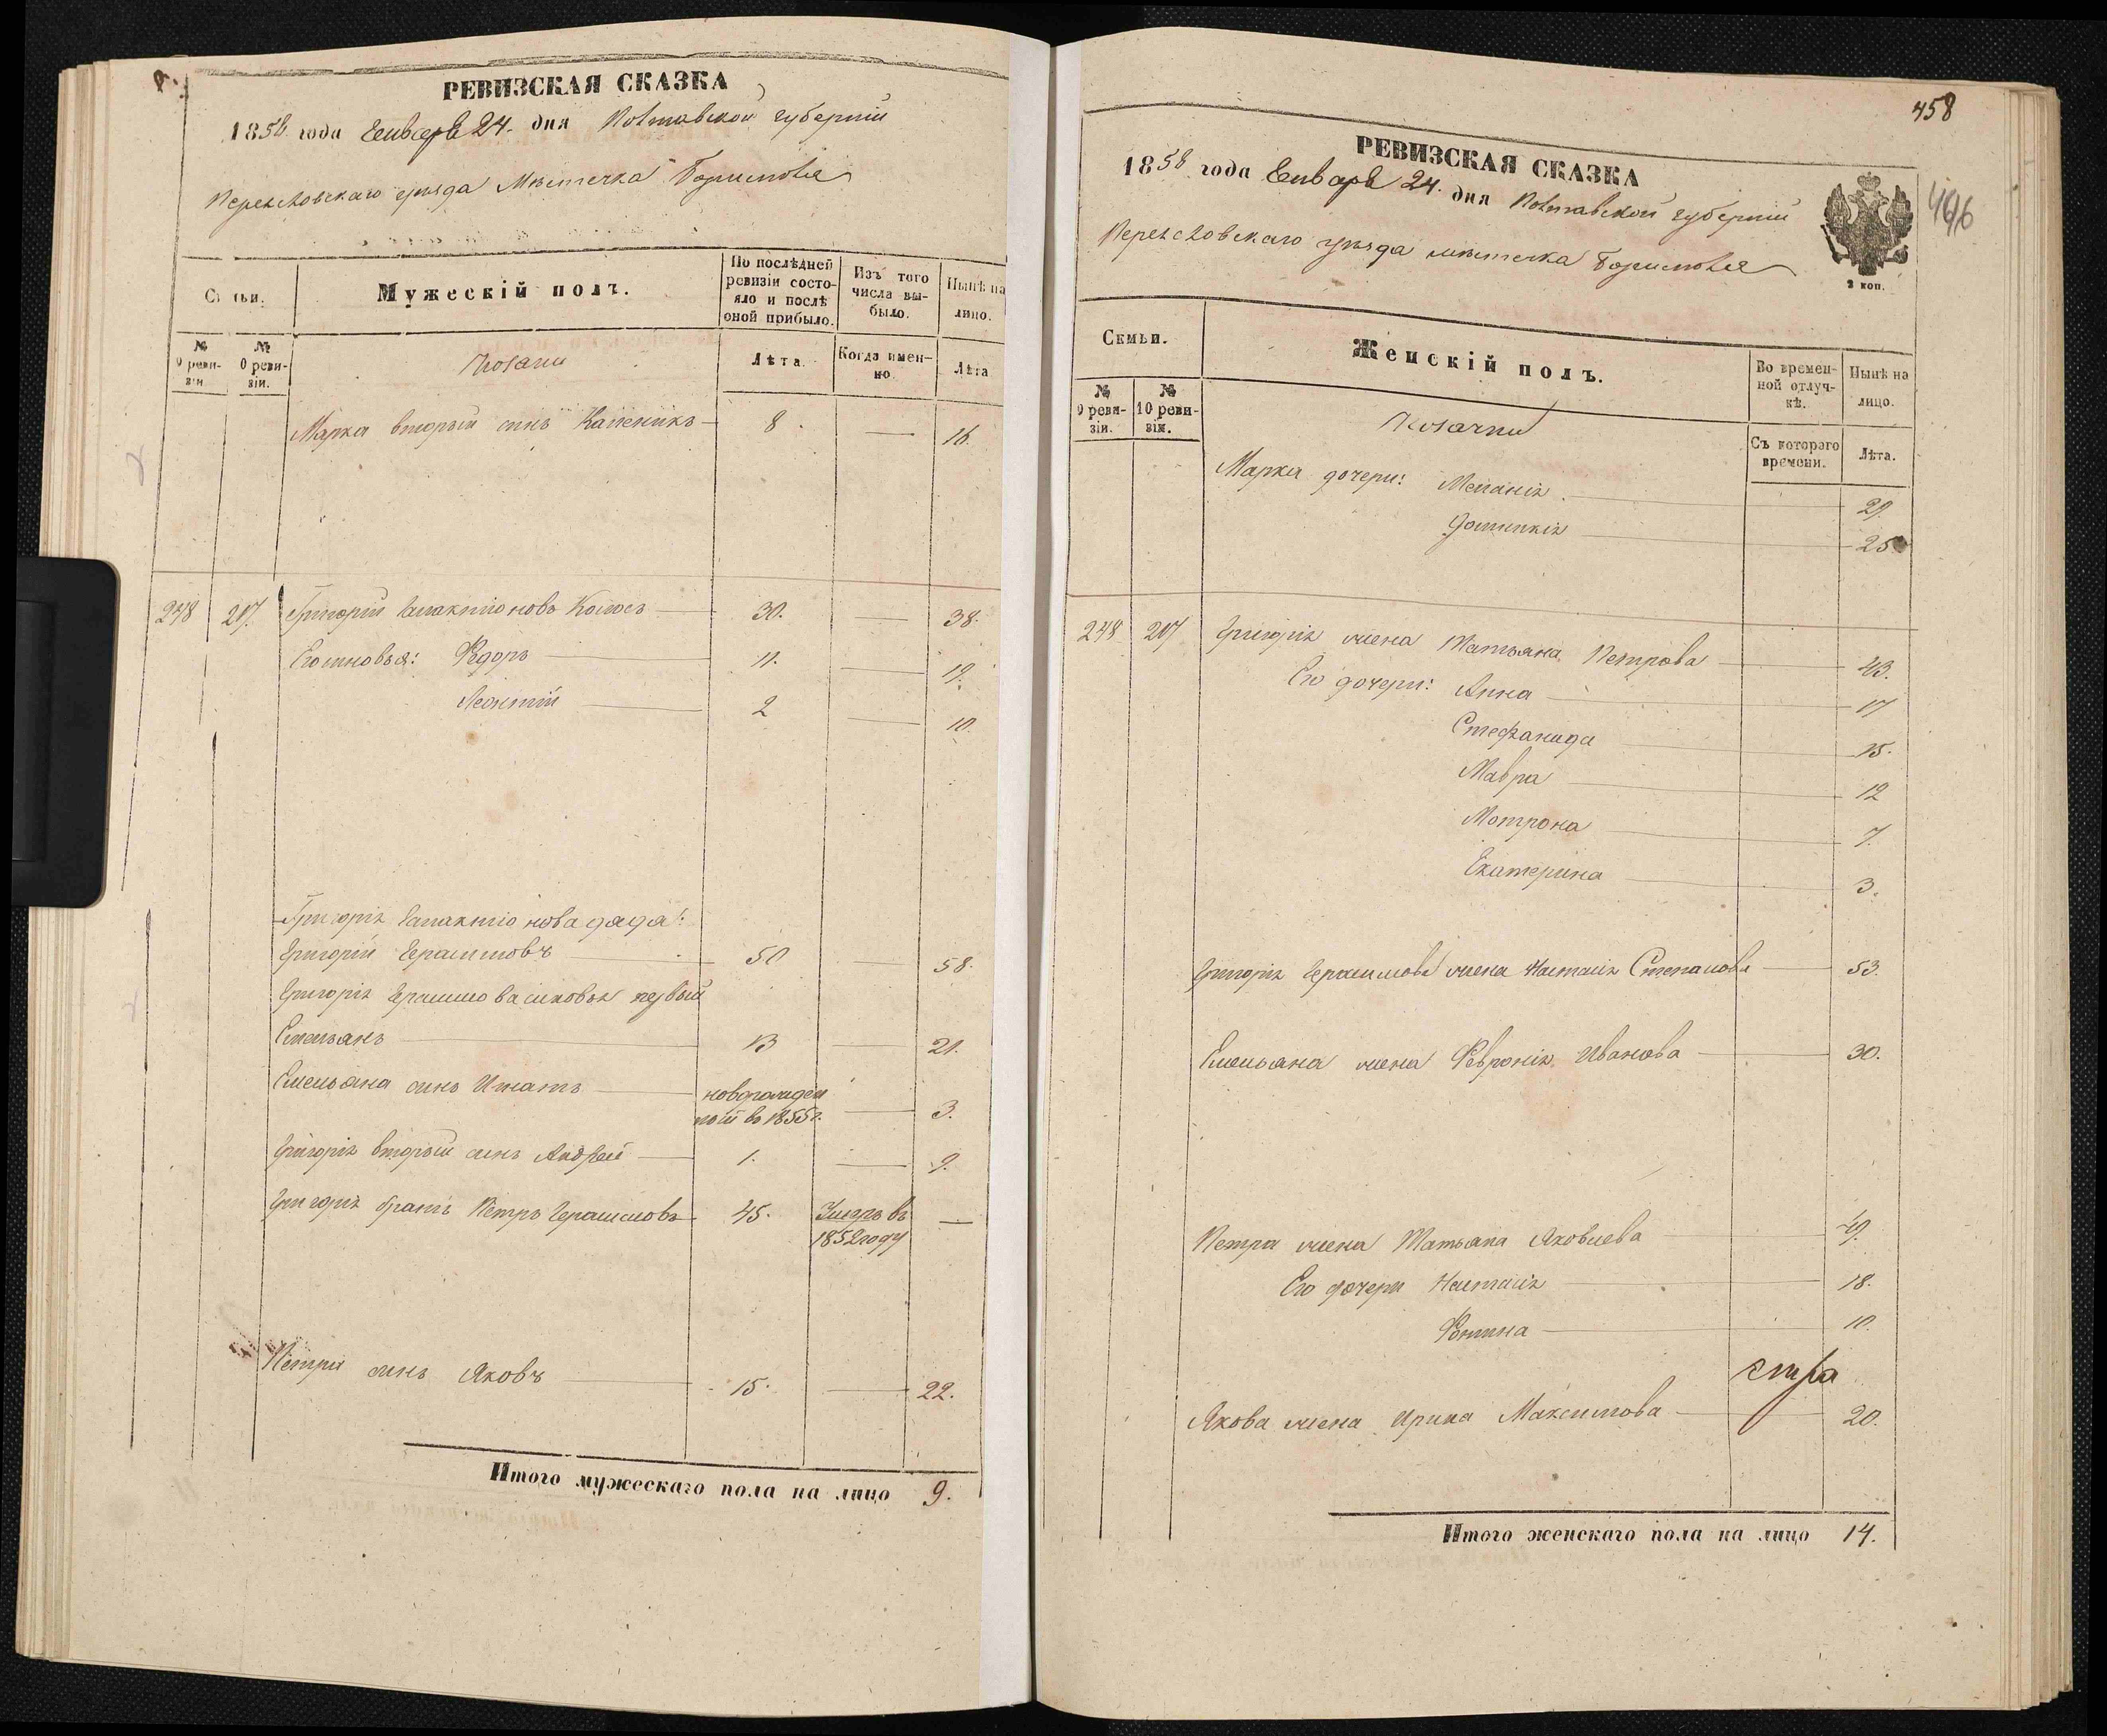 РЕВИЗСКАЯ СКАЗКА
1858 года Генваря 24. дня Полтавской губерніи
Переяславскаго уезда Мѣстечка Борисполя
Мужескій полъ.
По послѣдней ревизіи состояло и послѣ оной прибыло.
Изъ того числа выбыло.
Нынѣ на лицо.
№ реви-зіи.
№ 0 реви-зіи.
Козаки
Лѣта.
Когда имен-но
Лѣта
Марка вторый синъ Каленикъ 8. — 16.
248 217. Григорій Галактіоновъ 30. — 38.
Его сыновья: Федоръ 11. — 19.
Леонтій 2 — 10.
Григорія Галактіонова дядя:
Григорій Герасимовъ 50 — 58.
Григорія Герасимова сыновья первый
Емельянъ 13 — 21.
Емельяна синъ Игнатъ новорожден ный въ 1855 г. — 3.
Григорія вторый синъ Андрей 1. — 9.
Григорія братъ Петръ Герасимовъ 45. Умеръ въ 1852 году —
Петра синъ Яковъ 15. — 22.
Итого мужескаго пола на лицо 9.
458
РЕВИЗСКАЯ СКАЗКА
1858 года Генваря 24. дня Полтавской губерніи
Переяславскаго уезда мѣстечка Борисполя
3 коп.
Семьи.
Женскій полъ.
Во времен-ной отлуч-кѣ.
Нынѣ на лицо.
№ реви-зіи.
№ 10 реви-зіи.
Козачки
Съ котораго времени.
Лѣта.
Марка дочери: Меланія — 29.
Домникія — 25
248 217 Григорія жена Татьяна Петрова — 43.
Его дочери: Анна — 17
Стефанида — 15.
Мавра — 12
Мотрона — 7.
Екатерина — 3.
Григорія Герасимова жена Настасія Степанова — 53.
Емельяна жена Февронія Иванова — 30.
Петра жена Татьяна Яковлева — 49.
Его дочери Настасія — 18.
10.
Якова жена Ирина Максимова — 20.
Итого женскаго пола на лицо 14.